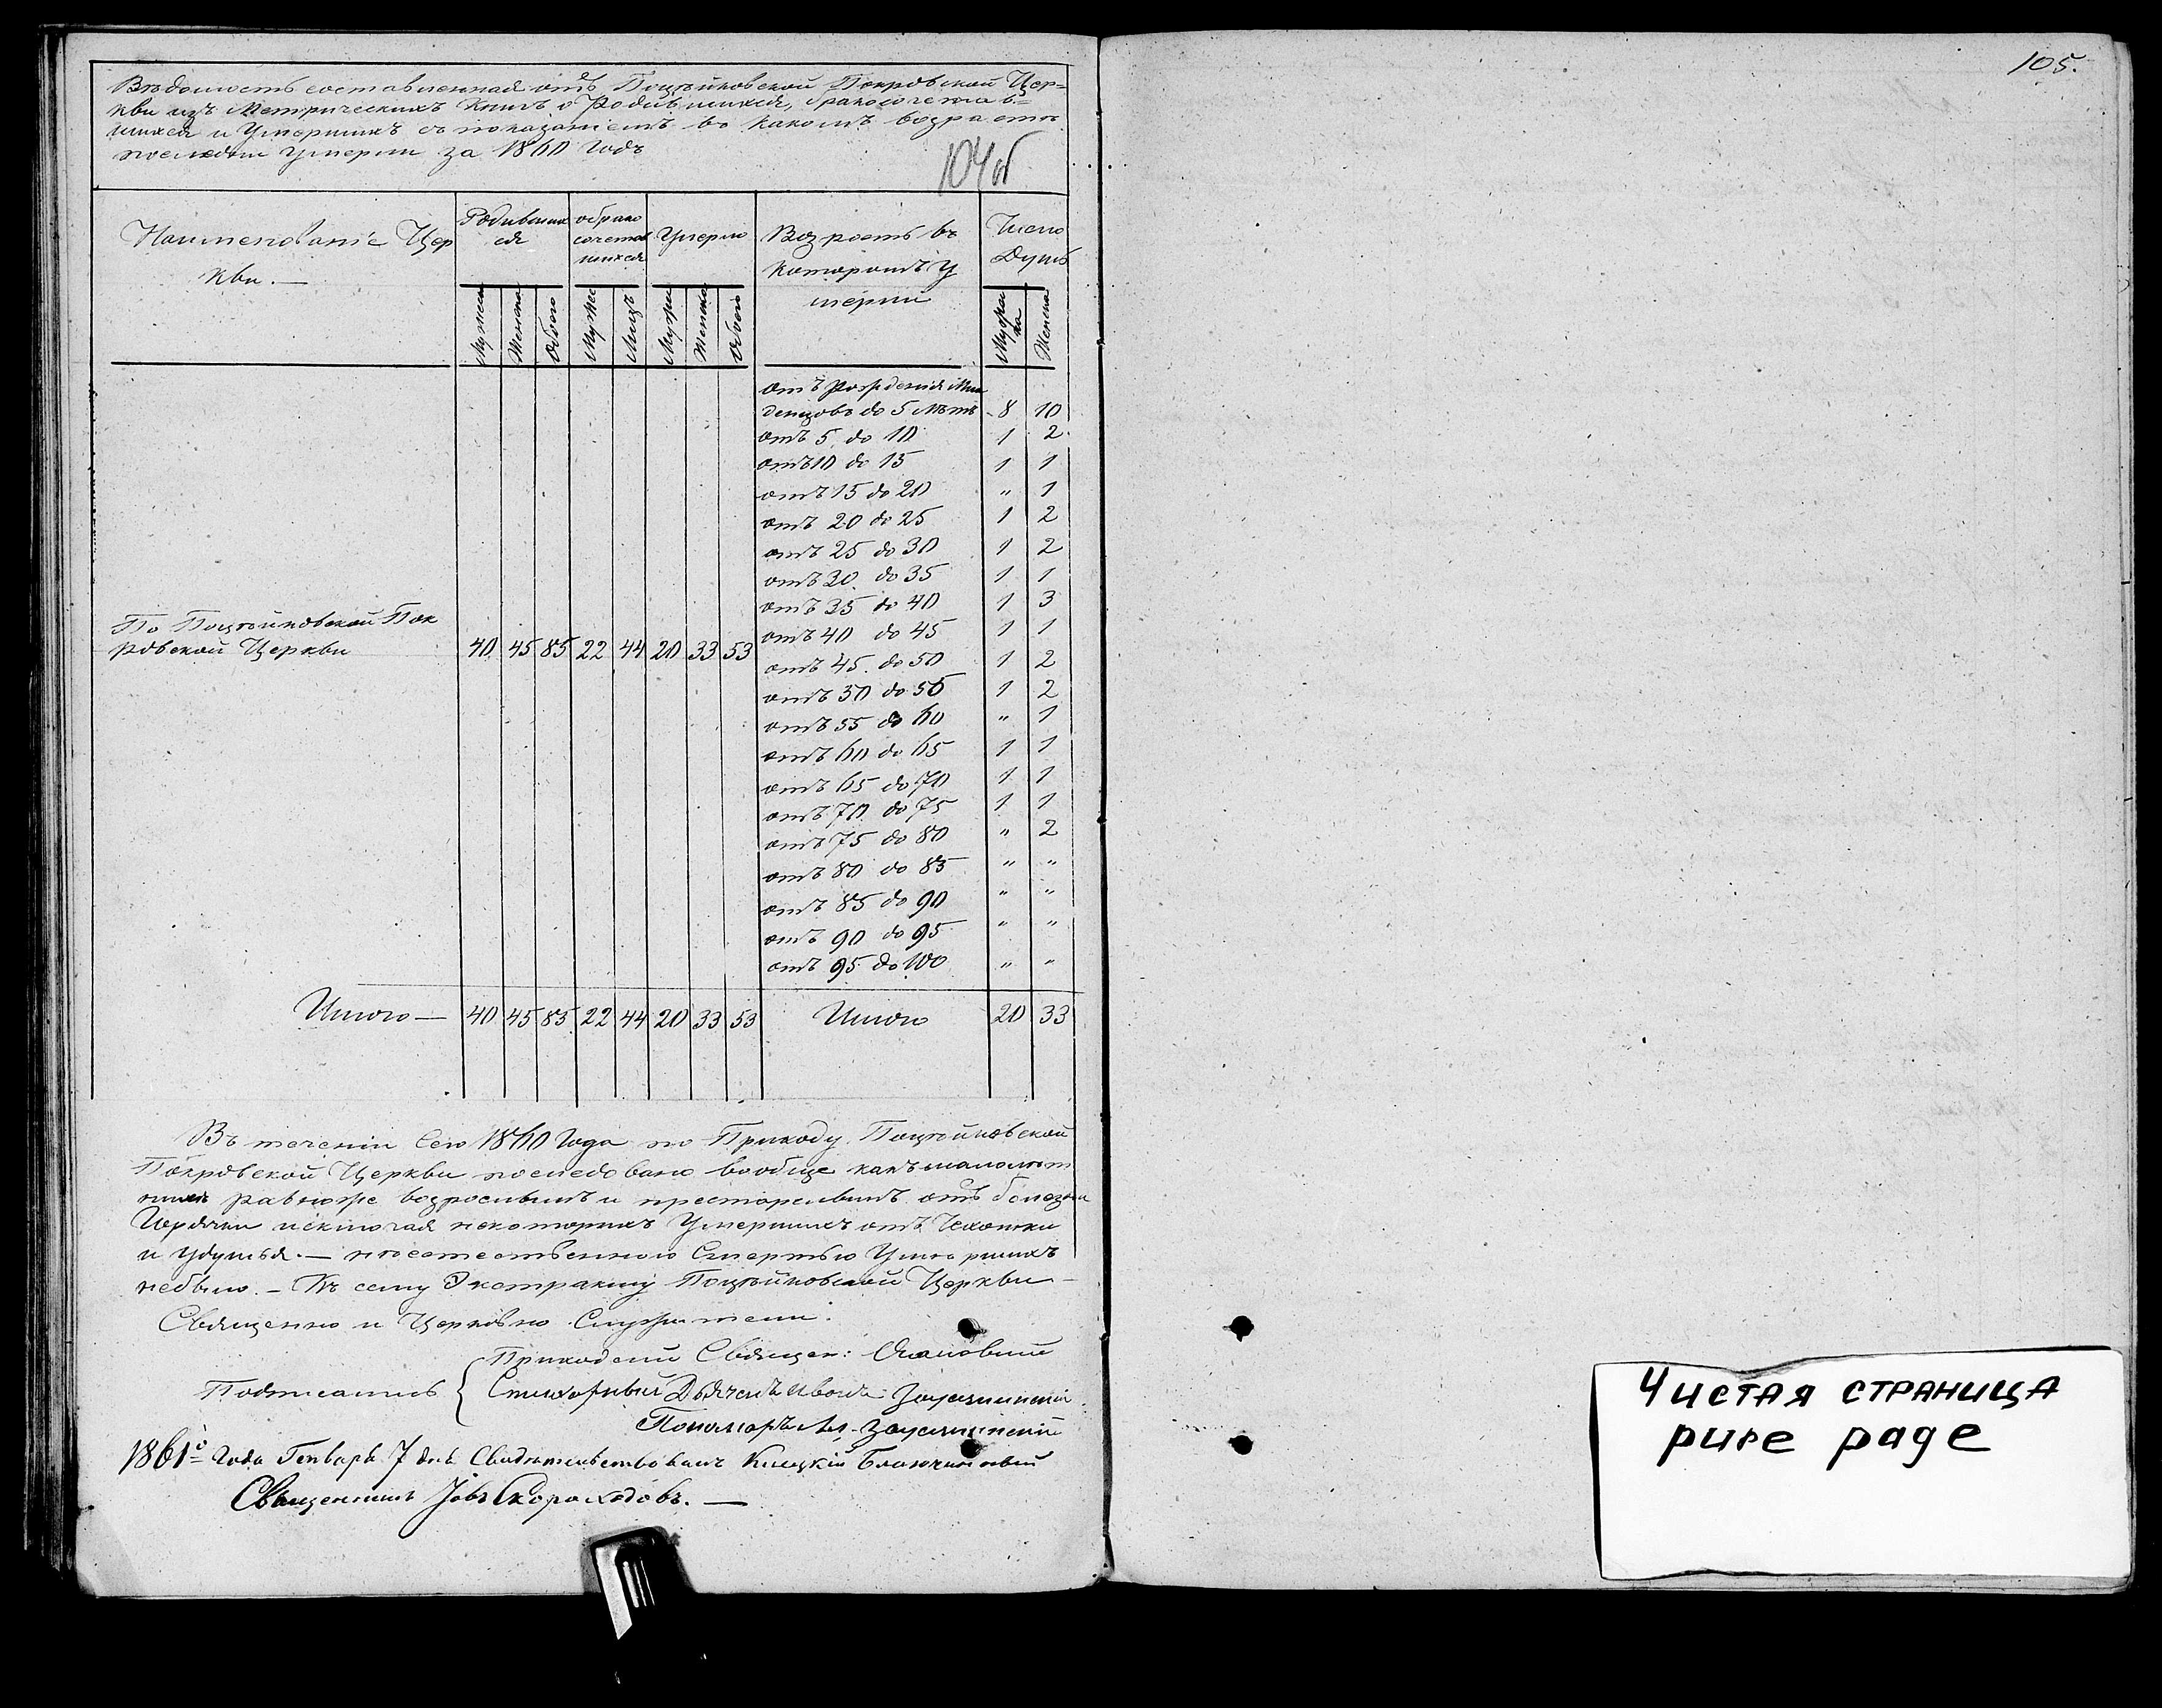 Вѣдомость составленная отъ Поцѣйковской Покровской Цер=
кви изъ Метрическихъ Книгъ о Родившихся, бракосочетав=
шихся и Умершихъ съ показаніемъ въ какомъ возрастѣ
последни умерли за 1860 годъ
104об
105.
Наименованіе Цер
кви. —
Родивших
ся
обрако
сочетав
шихся
Умерло
Возрастъ въ
которомъ у
мерли
Число
Душъ
Мужеск
Женска
Обоего
Мужес
Лицъ
Мужеск
Женска
Обоего
Мужеска
Женска
отъ Рожденія Мла
денцовъ до 5 лѣтъ 8 10
отъ 5 до 10 1 2
отъ 10 до 15 1 1
отъ 15 до 20 " 1
отъ 20 до 25 1 2
отъ 25 до 30 1 2
отъ 30 до 35 1 1
отъ 35 до 40 1 3
отъ 40 до 45 1 1
отъ 45 до 50 1 2
отъ 50 до 55 1 2
отъ 55 до 60 " 1
отъ 60 до 65 1 1
отъ 65 до 70 1 1
отъ 70 до 75 1 1
отъ 75 до 80 " 2
отъ 80 до 85 " "
отъ 85 до 90 " "
отъ 90 до 95 " "
отъ 95 до 100 " "
По Поцѣйковской Пок
ровской Церкви 40 45 85 22 44 20 33 53
Итого — 40 45 85 22 44 20 33 53 Итого 20 33
Въ теченіи Сего 1860 Года по Приходу Поцѣйковской
Покровской Церкви последовало вообще какъ малолѣт
нимъ равноже возросшимъ и престарелымъ отъ болезни
Горячки исключая некоторихъ Умершихъ отъ Чахотки
и удушья. — неестественною Смертью Умершихъ
небыло. — Къ сему Экстракту Поцѣйковской Церкви —
Священно и Церковно Служители:
Приходскій Священ:
Подписались Стихарный Дьячекъ Иванъ
Пономаръ
1861го года Генваря 7 дня Свидѣтельствовалъ Клецкій Благочинный
Священникъ Іовъ Скороходовъ. —
Чистая страница
pure page